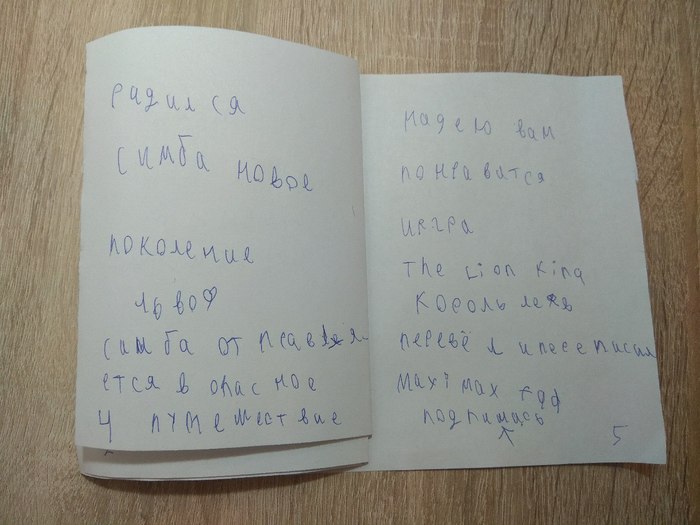 радился
симба новое
поколение
льво
симба отправля-
ется в опасное
4 путмешествие
надею вам
понравится
иргра
The Lion King
король лев
перевё л и переписил
Maximax
подпишись
5